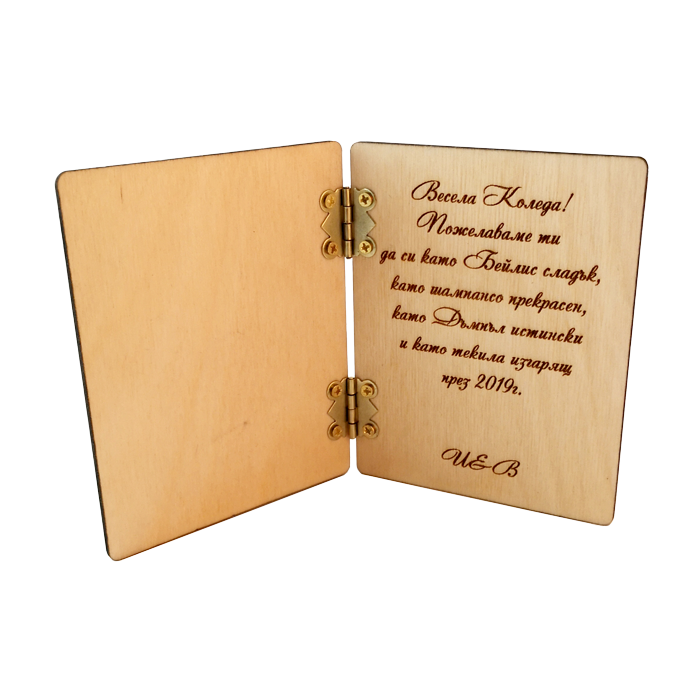 Весела Коледа!
Пожелаваме ти
да си като Бейлис сладък,
като шампансо прекрасен,
като Дъмпъл истински
и като текила изгарящ
през 2019г.
И&В